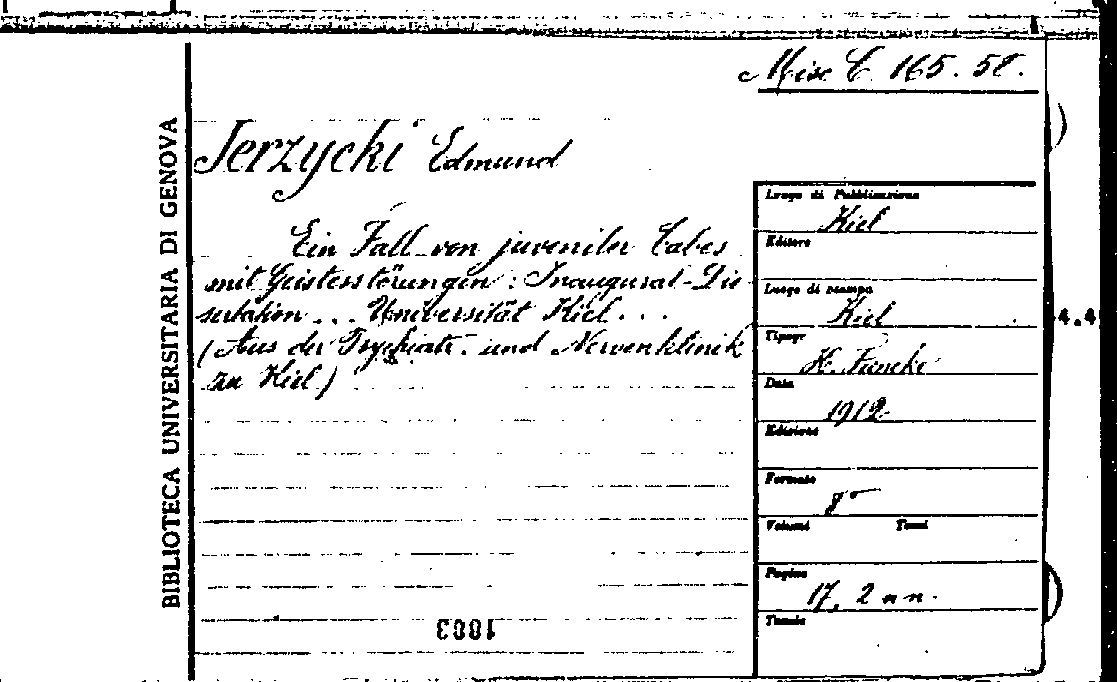 Misc C. 165. 58.
BIBLIOTECA UNIVERSITARIA DI GENOVA
Jerzycki Edmund
Ein Fall von juveniler Tabes
mit Geistesstörungen : Inaugural-Dis
sertation ... Universität Kiel ...
(Aus der Psychiatr. und Nervenklinik
zu Kiel)
Luogo di Pubblicazione
Kiel
Editore
Luogo di stampa
Kiel
Tipogr
H. Fiencke
Data
1912
Edizione
Formato
8°
Volumi Tomi
Pagine
17, 2 nn.
Tavole
4.4
1003